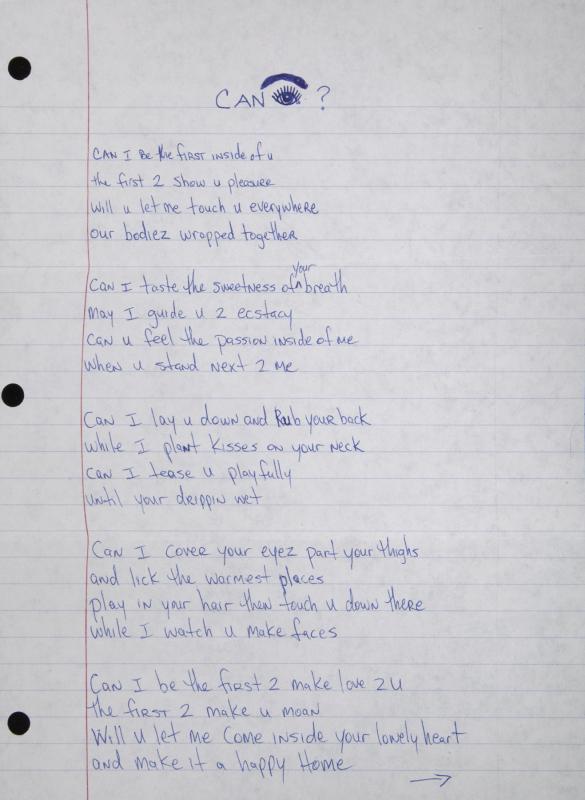 CAN 👁 ?
CAN I Be the first inside of u
the first 2 show u pleasier
will u let me touch u everywhere
our bodiez wropped together
Can I taste the sweetness of your breath
may I guide u 2 ecstacy
Can u feel the passion inside of me
when u stand next 2 me
Can I lay u down and Rub your back
while I plant kisses on your neck
can I tease u playfully
until your drippin wet
Can I cover your eyez part your thighs
and lick the warmest places
play in your hair then touch u down there
while I watch u make faces
Can I be the first 2 make love 2 U
the first 2 make u moan
Will u let me Come inside your lonely heart
and make it a happy Home
→